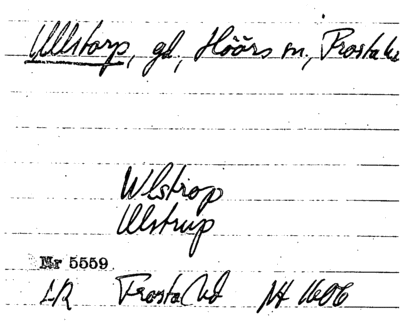 Ullstorp, gd, Höörs sn, Frosta hd
Wlstrop
Ulstrup
Nr 5559
LR Frosta hd Nt 1606